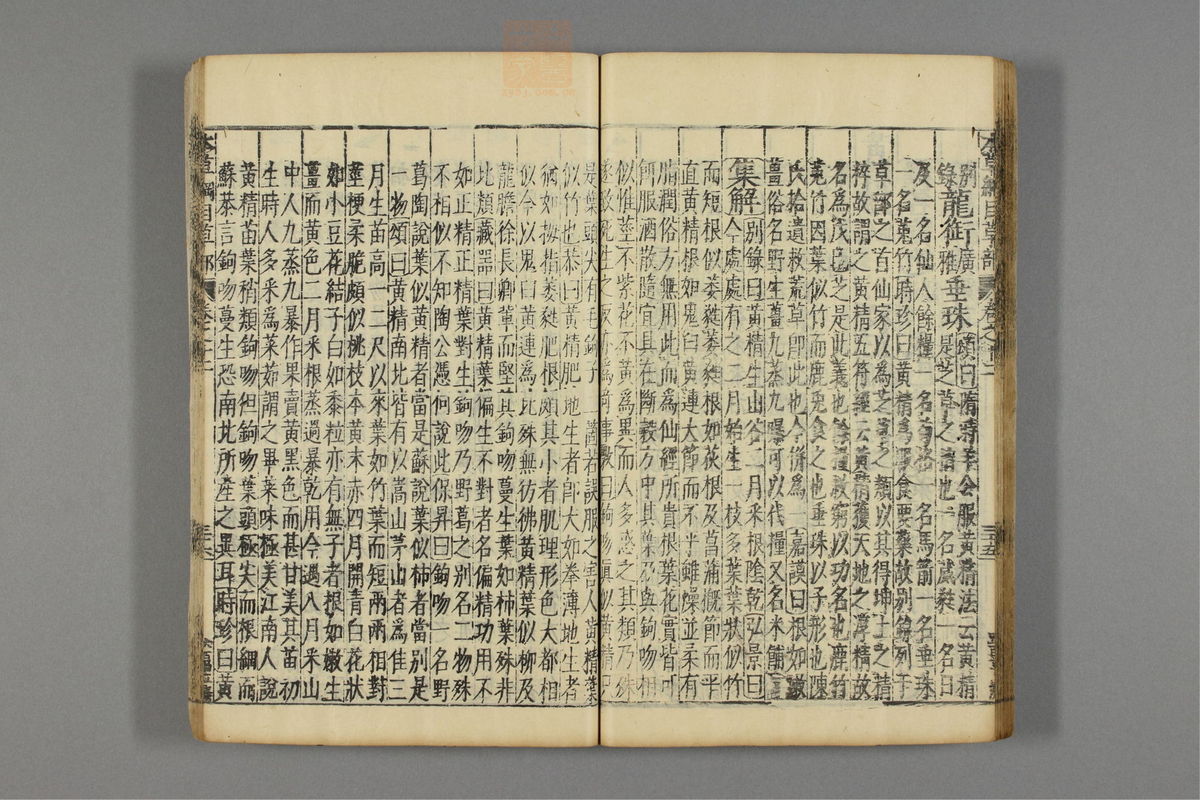 別錄龍銜廣雅垂珠頌曰隋時羊公服黃精法云黃精
是芝草之精也一名葳蕤一名白
及一名仙人餘糧一名苟格一名馬箭一名垂珠
一名菟竹時珍曰黃精為服食要藥故別錄列于
草部之首仙家以為芝草之類以其得坤土之精
粹故謂之黃精五符經云黃精獲天地之淳精故
名為戊己芝是此義也餘糧救窮以功名也鹿竹
菟竹因葉似竹而鹿兔食之也垂珠以子形也陳
氏拾遺救荒草即此也今併為一嘉謨曰根如嫩
薑俗名野生薑九蒸九曝可以代糧又名米餔
集解別錄曰黃精生山谷二月采根陰乾弘景曰
今處處有之二月始生一枝多葉葉狀似竹
而短根似萎蕤萎蕤根如荻根及菖蒲概節而平
直黃精根如鬼臼黃連大節而不平雖燥並柔有
脂潤俗方無用此而為仙經所貴根葉花實皆可
餌服酒散隨宜具在斷穀方中其葉乃與鉤吻相
似惟莖不紫花不黃為異而人多惑之其類乃殊
遂致死生之反亦為奇事斅曰鉤吻真似黃精
是葉頭尖有毛鉤子二箇若誤服之害人黃精葉
似竹也恭曰黃精肥地生者即大如拳薄地生者
猶如拇指萎蕤肥根頗其小者肌理形色大都相
似今以鬼臼黃連為比殊無彷彿黃精葉似柳及
龍膽徐長卿輩而堅其鉤吻蔓生葉如柿葉殊非
比類藏器曰黃精葉偏生不對者名偏精功用不
如正精正精葉對生鉤吻乃野葛之別名二物殊
不相似不知陶公憑何說此保昇曰鉤吻一名野
葛陶說葉似黃精者當是蘇說葉似柿者當別是
一物頌曰黃精南北皆有以嵩山茅山者為佳三
月生苗高一二尺以來葉如竹葉而短兩兩相對
莖梗柔脆頗似桃枝本黃末赤四月開青白花狀
如小豆花結子白如黍粒亦有無子者根如嫩生
薑而黃色二月采根蒸過暴乾用今遇八月采山
中人九蒸九暴作果賣黃黑色而甚甘美其苗初
生時人多采為菜茹謂之畢菜味極美江南人說
黃精苗葉稍類鉤吻但鉤吻葉頭極尖而根細而
蘇恭言鉤吻蔓生恐南北所產之異耳時珍曰黃
本草綱目草部
卷之十二